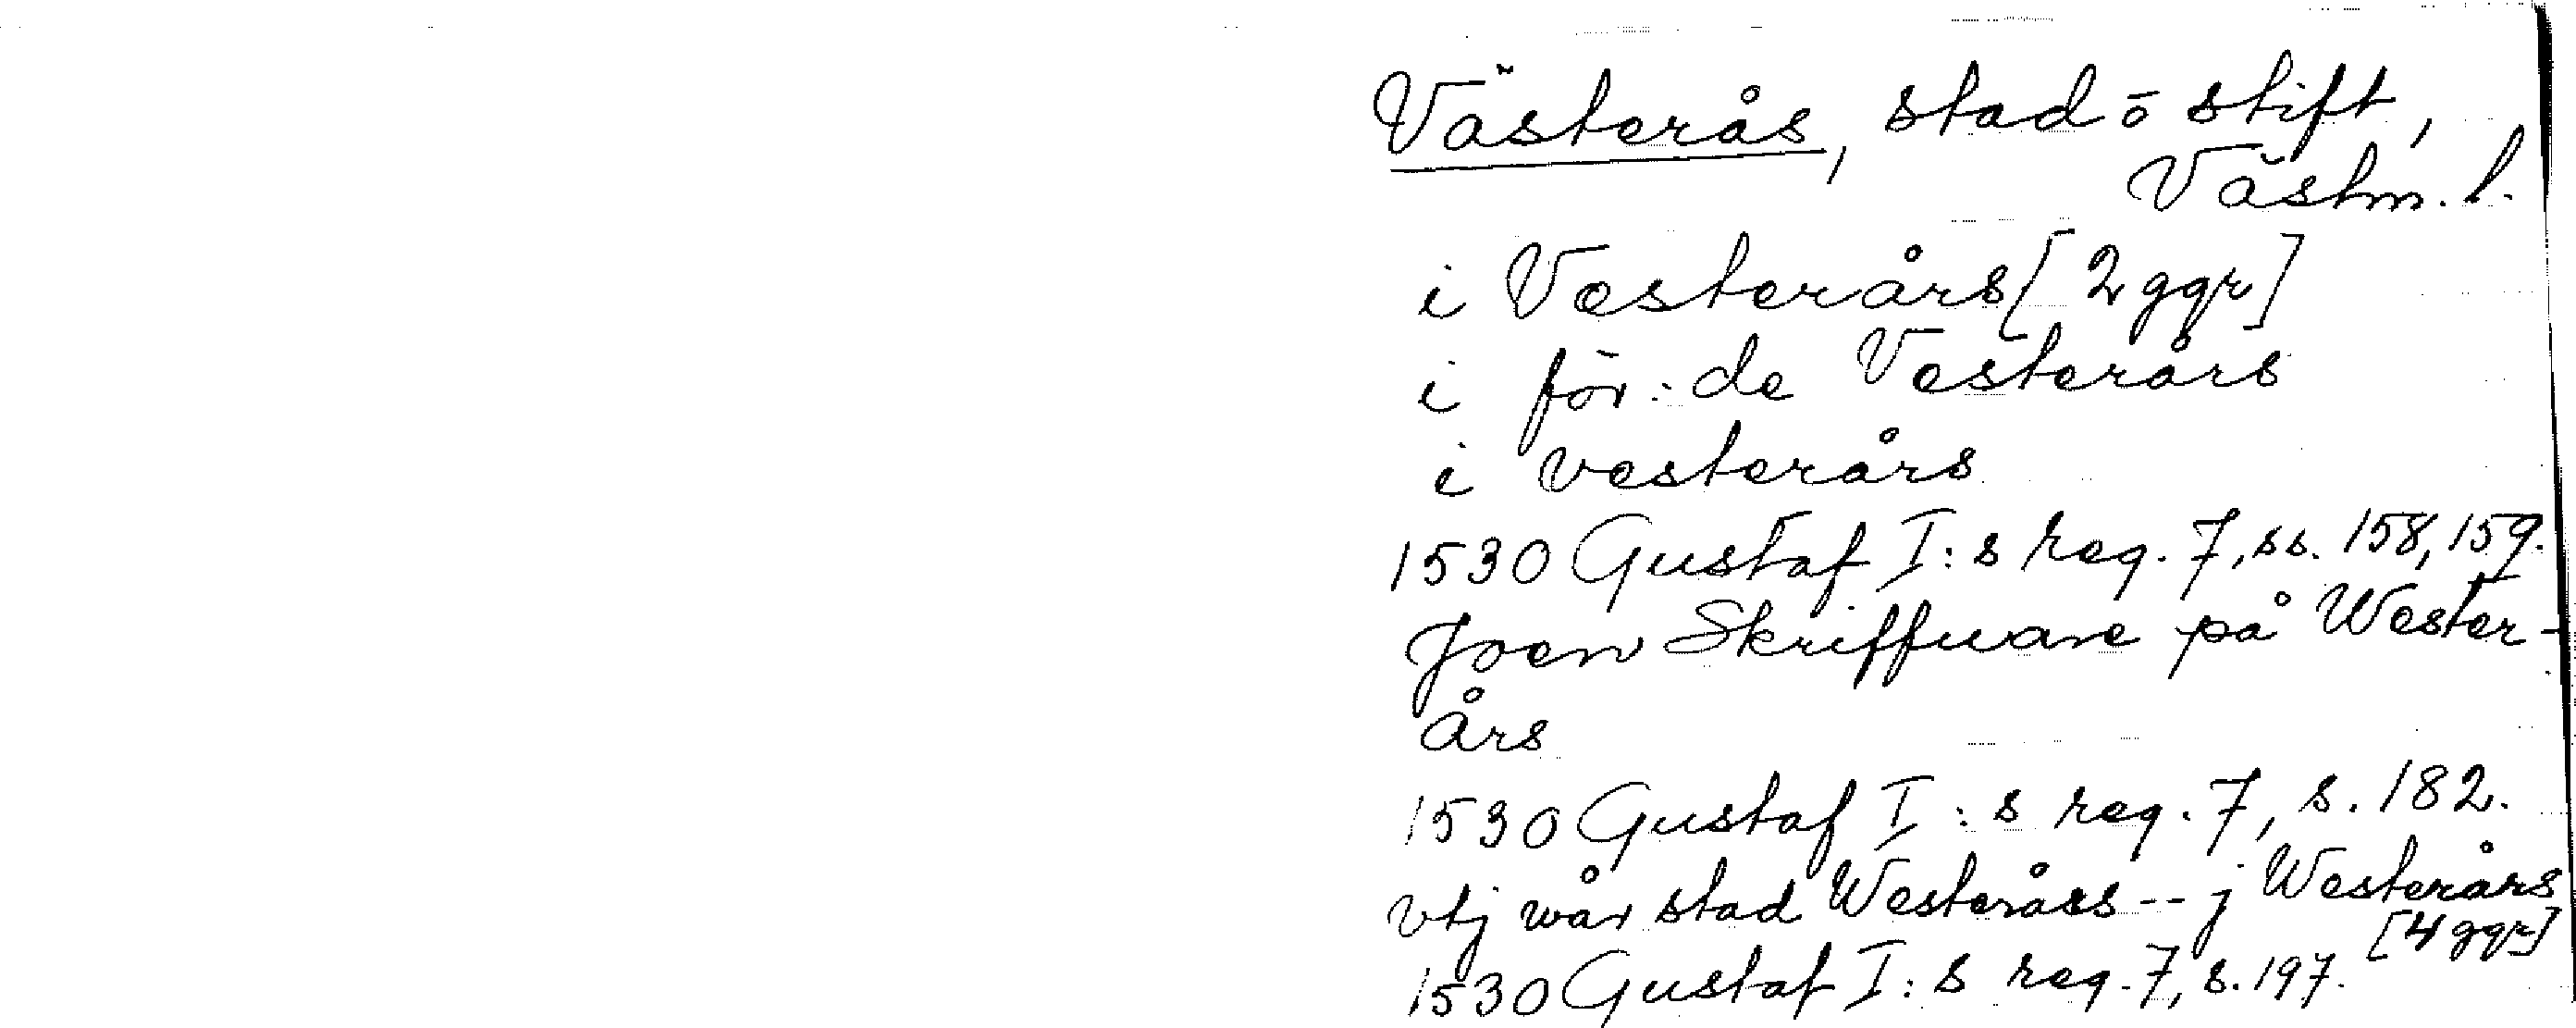 Västerås, stad ō stift,
Västm. l.
i Vesterårs [2 ggr]
i för:de Vesterårs
i vesterårs
1530 Gustaf I:s reg. 7, ss. 158, 159.
Joen Skriffuare på Wester-
års
1530 Gustaf I:s reg. 7, s. 182.
vtj wår stad Westerårs -- j Westerårs
[4 ggr]
1530 Gustaf I:s reg. 7, s. 197.